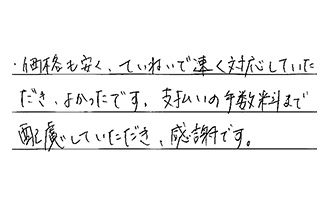 ・価格も安く、ていねいで速く対応していた
だき、よかったです。支払いの手数料まで
配慮していただき、感謝です。